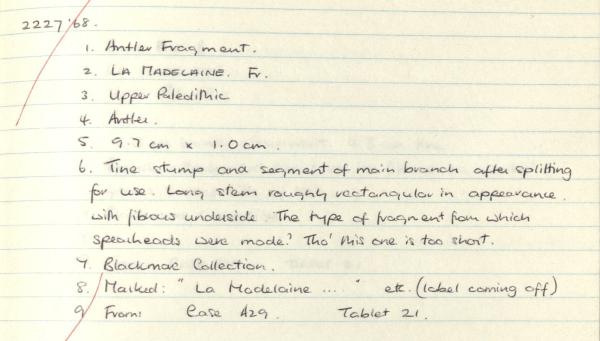 2227'68.
1. Antler Fragment.
2. LA MADELAINE. Fr.
3. Upper Paleolithic
4. Antler.
5. 9.7 cm x 1.0 cm.
6. Tine stump and segment of main branch after splitting
for use. Long stem roughly rectangular in appearance.
with fibrous underside. The type of fragment from which
spearheads were made? Tho' this one is too short.
7. Blackmore Collection.
8. Marked: "La Madelaine ...." etc. (label coming off)
9 From: Case A29. Tablet 21.